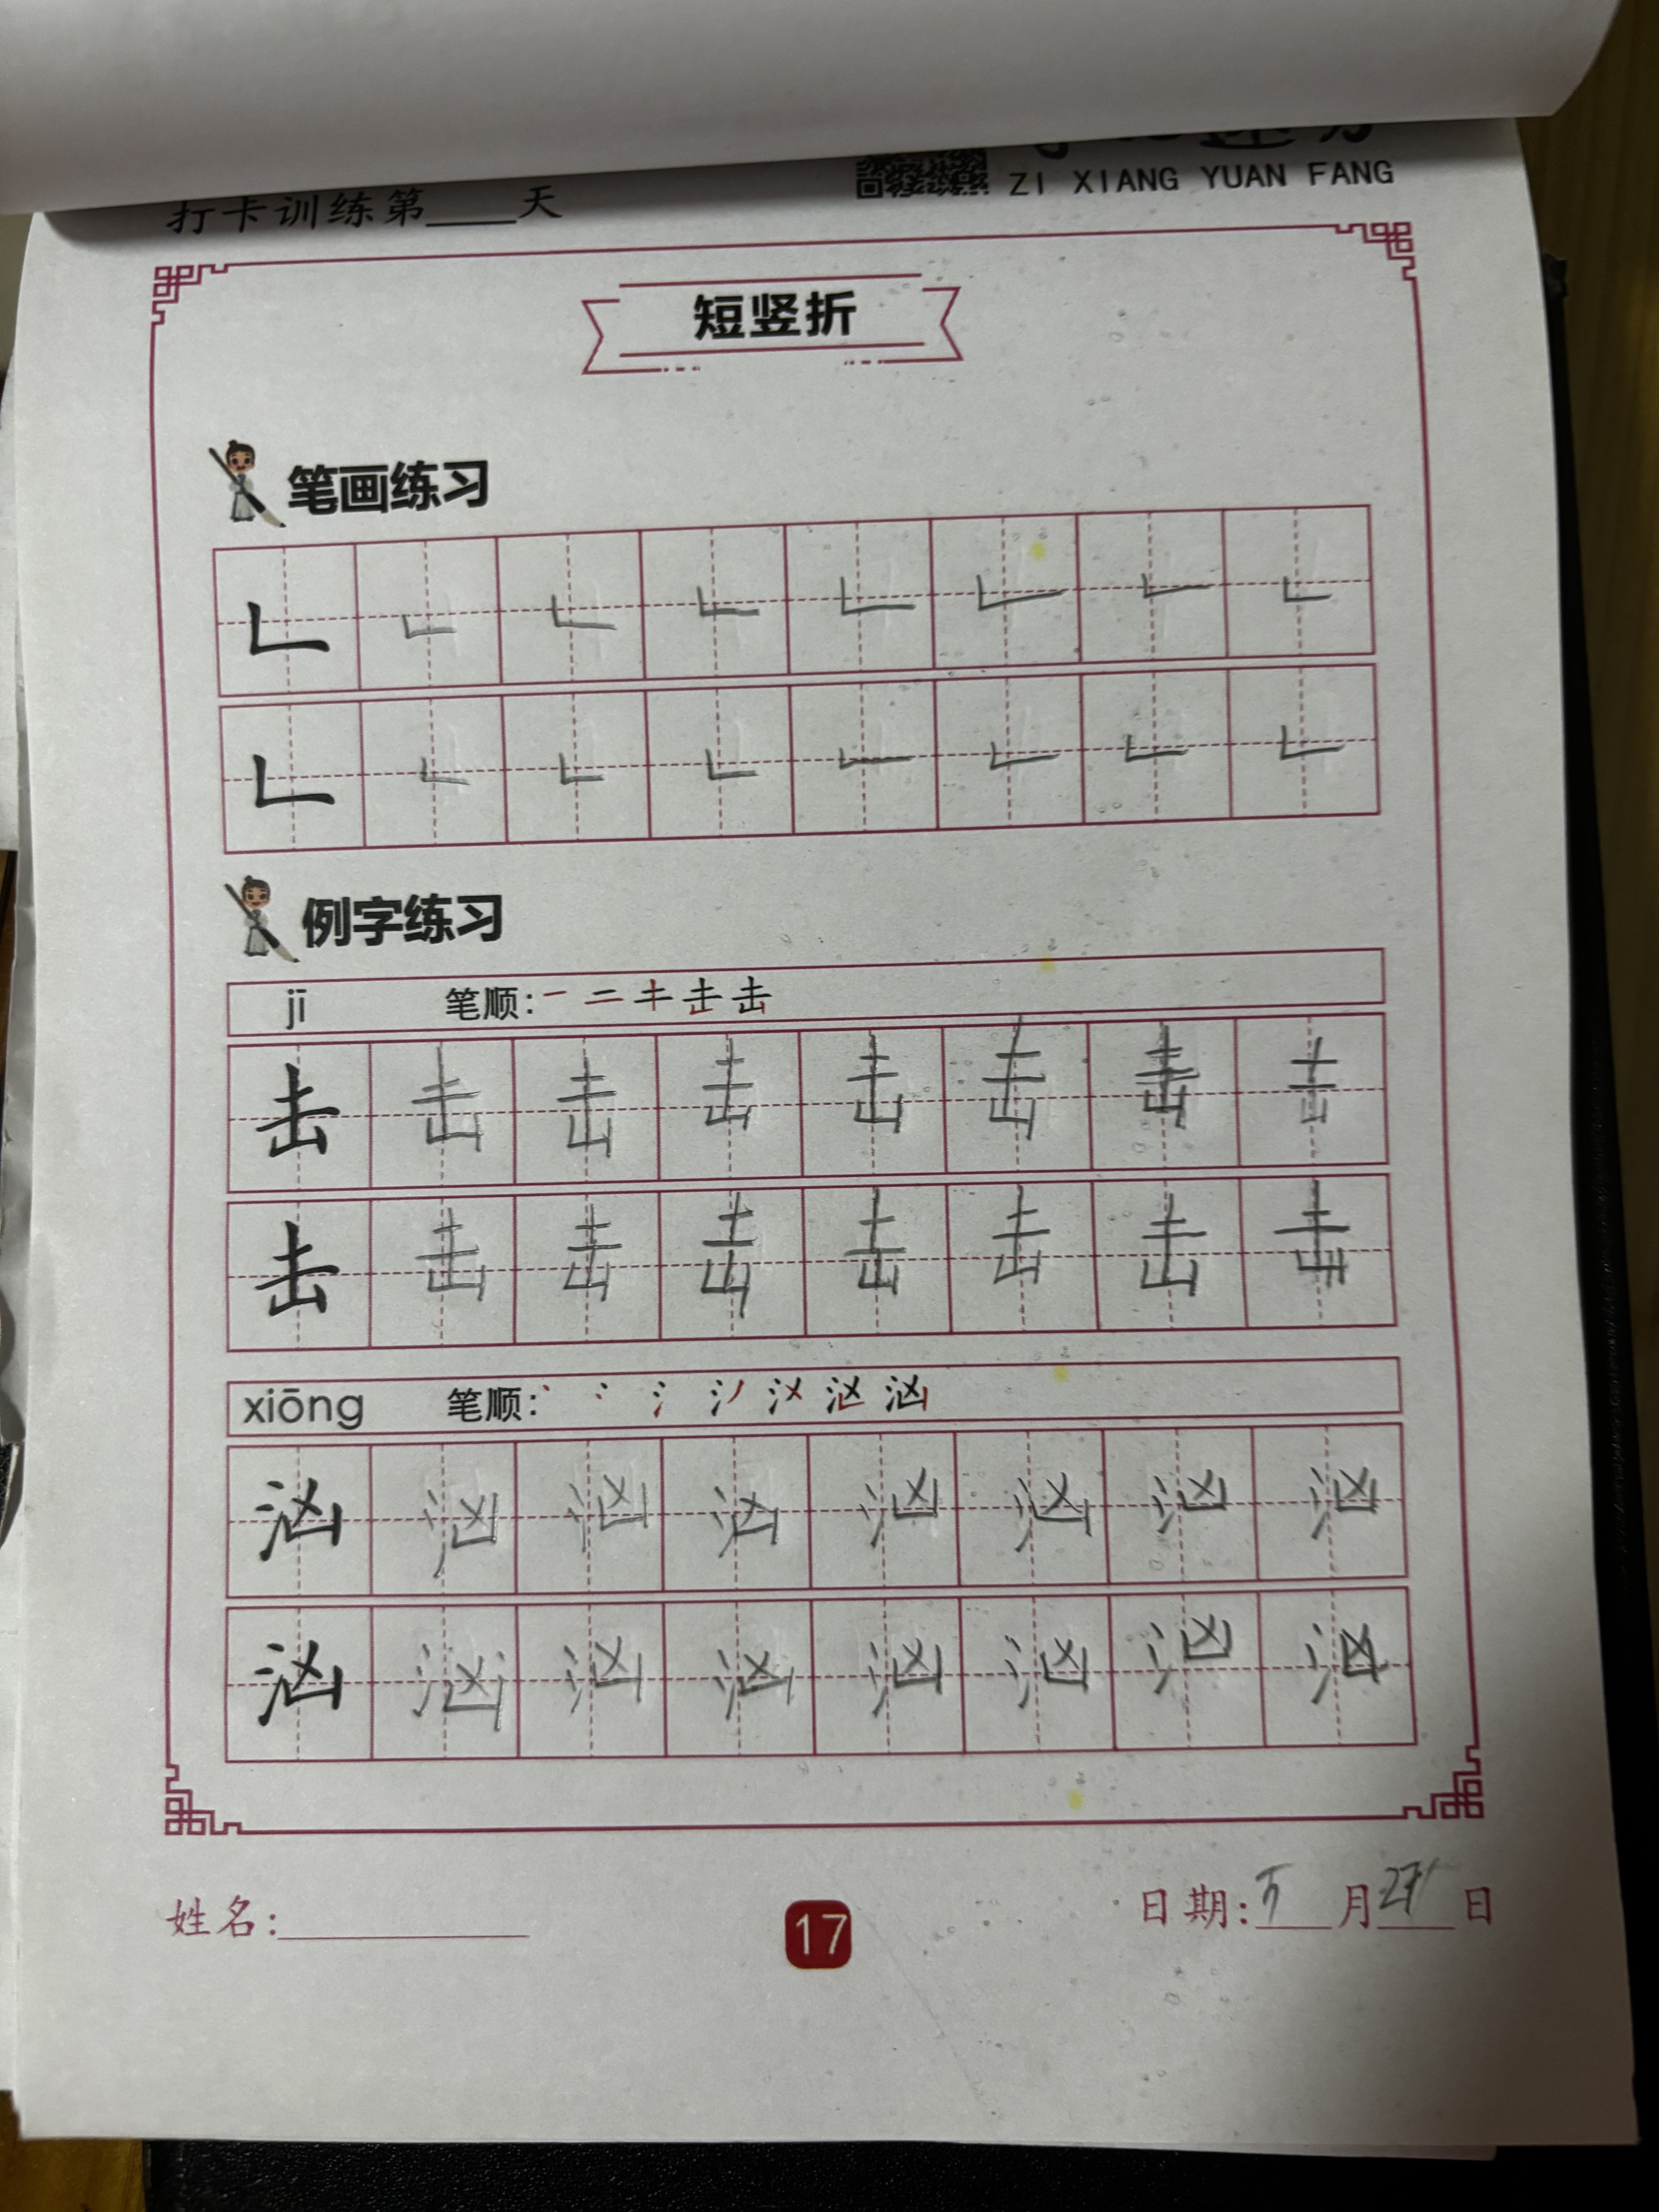 ZI XIANG YUAN FANG
打卡训练第____天
短竖折
笔画练习
例字练习
jī 笔顺:一 二 キ 击 击
击 击 击 击 击 击 击 击
击 击 击 击 击 击 击 击
xiōng 笔顺:
汹 汹 汹 汹 汹 汹 汹 汹
汹 汹 汹 汹 汹 汹 汹 汹
姓名:
17
日期: 月 日